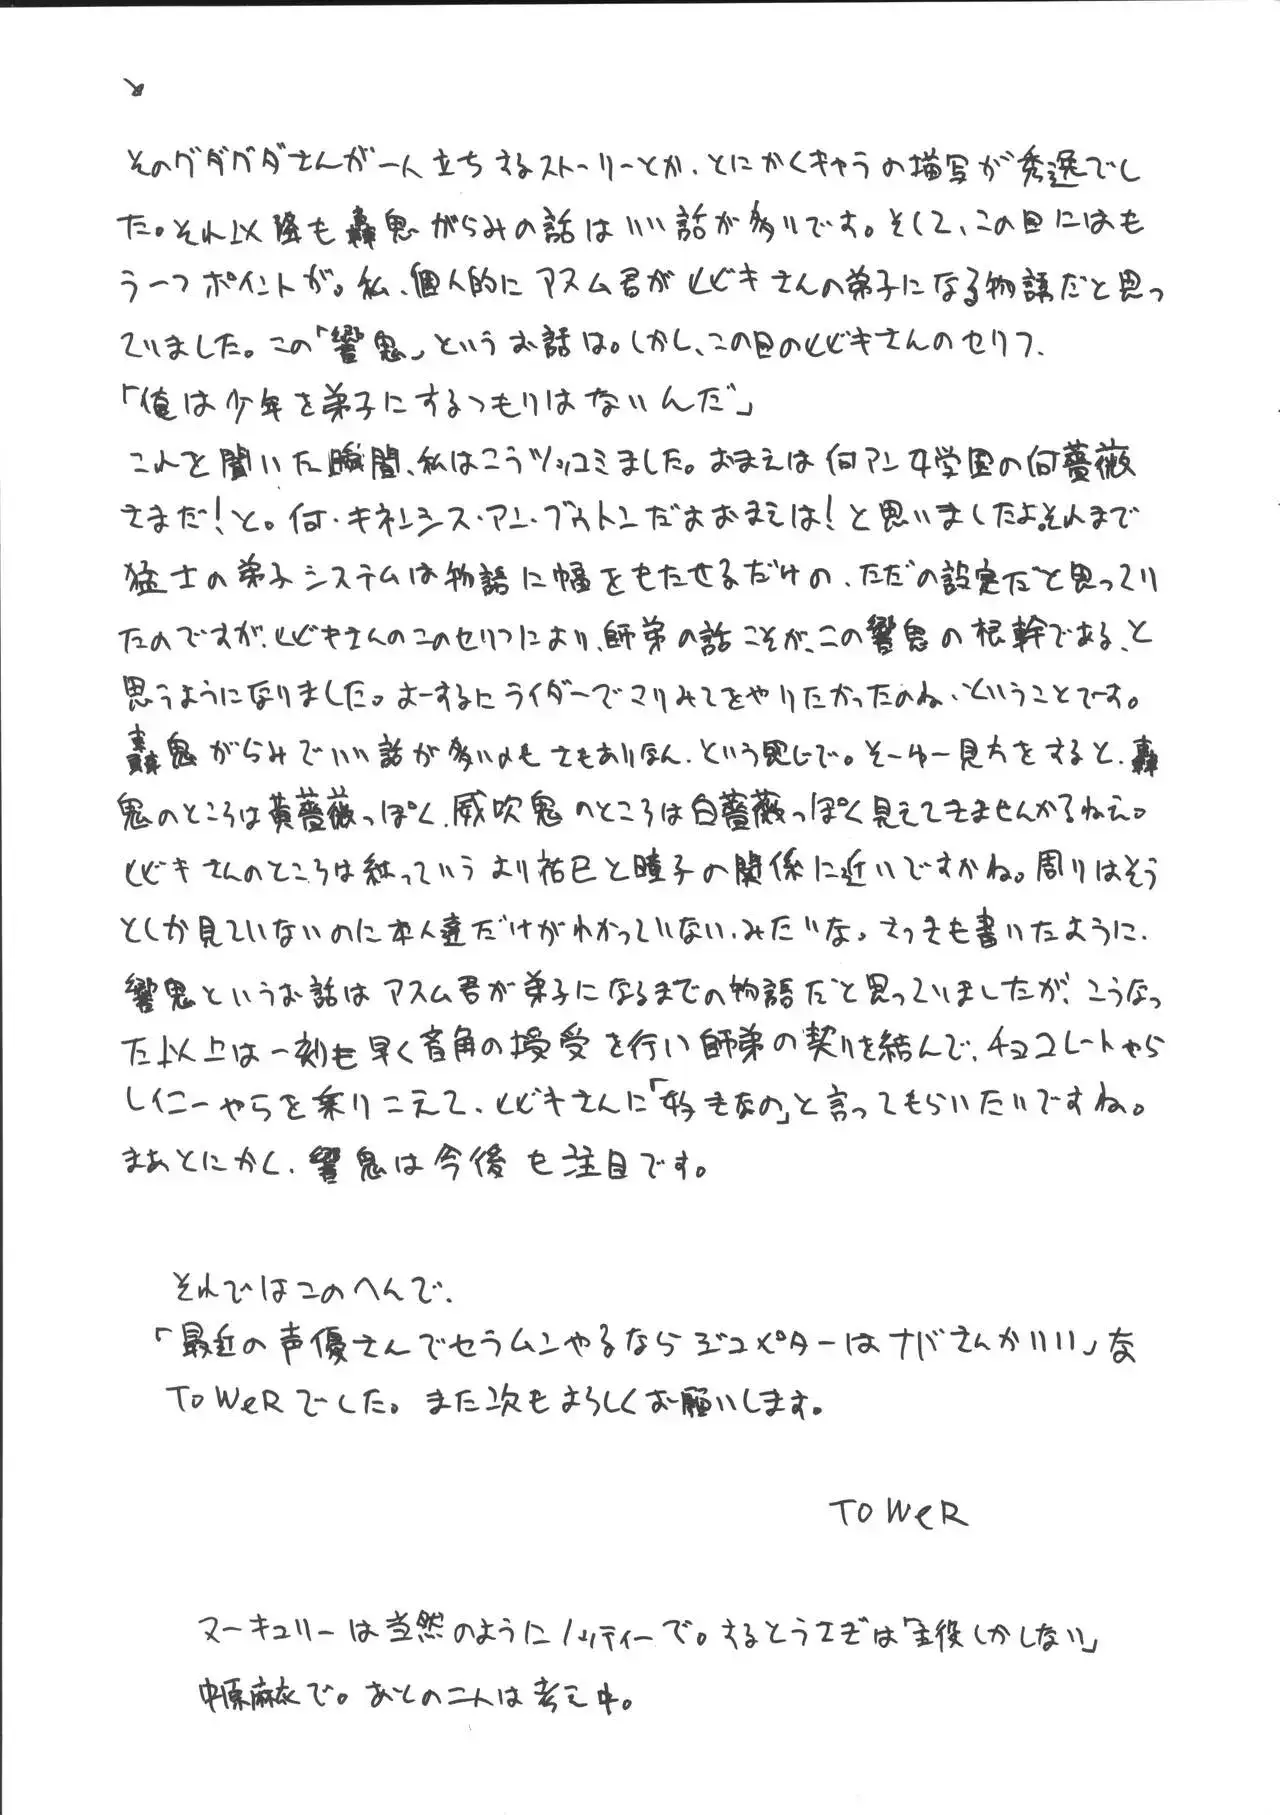 そのグダグダさんが一人立ちするストーリーとか、とにかくキャラの描写が秀逸でし
た。それ以降も轟鬼がらみの話はいい話が多いです。そして、この回にはも
う一つポイントが。私、個人的にアスム君がヒビキさんの弟子になる物語だと思っ
ていました。この「響鬼」というお話は。しかし、この回のヒビキさんのセリフ、
「俺は少年を弟子にするつもりはないんだ」
これを聞いた瞬間、私はこうツッコミました。おまえは何アン女学園の何薔薇
さまだ!と。何・キネンシス・アン・ブゥトンだよおまえは!と思いましたよ。それまで
猛士の弟子システムは物語に幅をもたせるだけの、ただの設定だと思ってい
たのですが、ヒビキさんのこのセリフにより、師弟の話こそが、この響鬼の根幹である、と
思うようになりました。よーするにライダーでマリみてをやりたかったのね、ということです。
轟鬼がらみでいい話が多いのもさもありなん、という感じで。そーゆー見方をすると、轟
鬼のところは黄薔薇っぽく、威吹鬼のところは白薔薇っぽく見えてきませんかるねぇ。
ヒビキさんのところは紅っていうより祐巳と瞳子の関係に近いですかね。周りはそう
としか見ていないのに本人達だけがわかっていない、みたいな。さっきも書いたように、
響鬼というお話はアスム君が弟子になるまでの物語だと思っていましたが、こうなっ
た以上は一刻も早く音角の授受を行い師弟の契りを結んで、チョコレートやら
レイニーやらを乗りこえて、ヒビキさんに「好きなの」と言ってもらいたいですね。
まあとにかく、響鬼は今後も注目です。
それではこのへんで、
「最近の声優さんでセラムンやるならジュピターはナバさんがいい」な
TOWeRでした。また次もよろしくお願いします。
TOWeR
マーキュリーは当然のようにノッティーで。するとうさぎは「主役しかしない」
中原麻衣で。あとの二人は考え中。